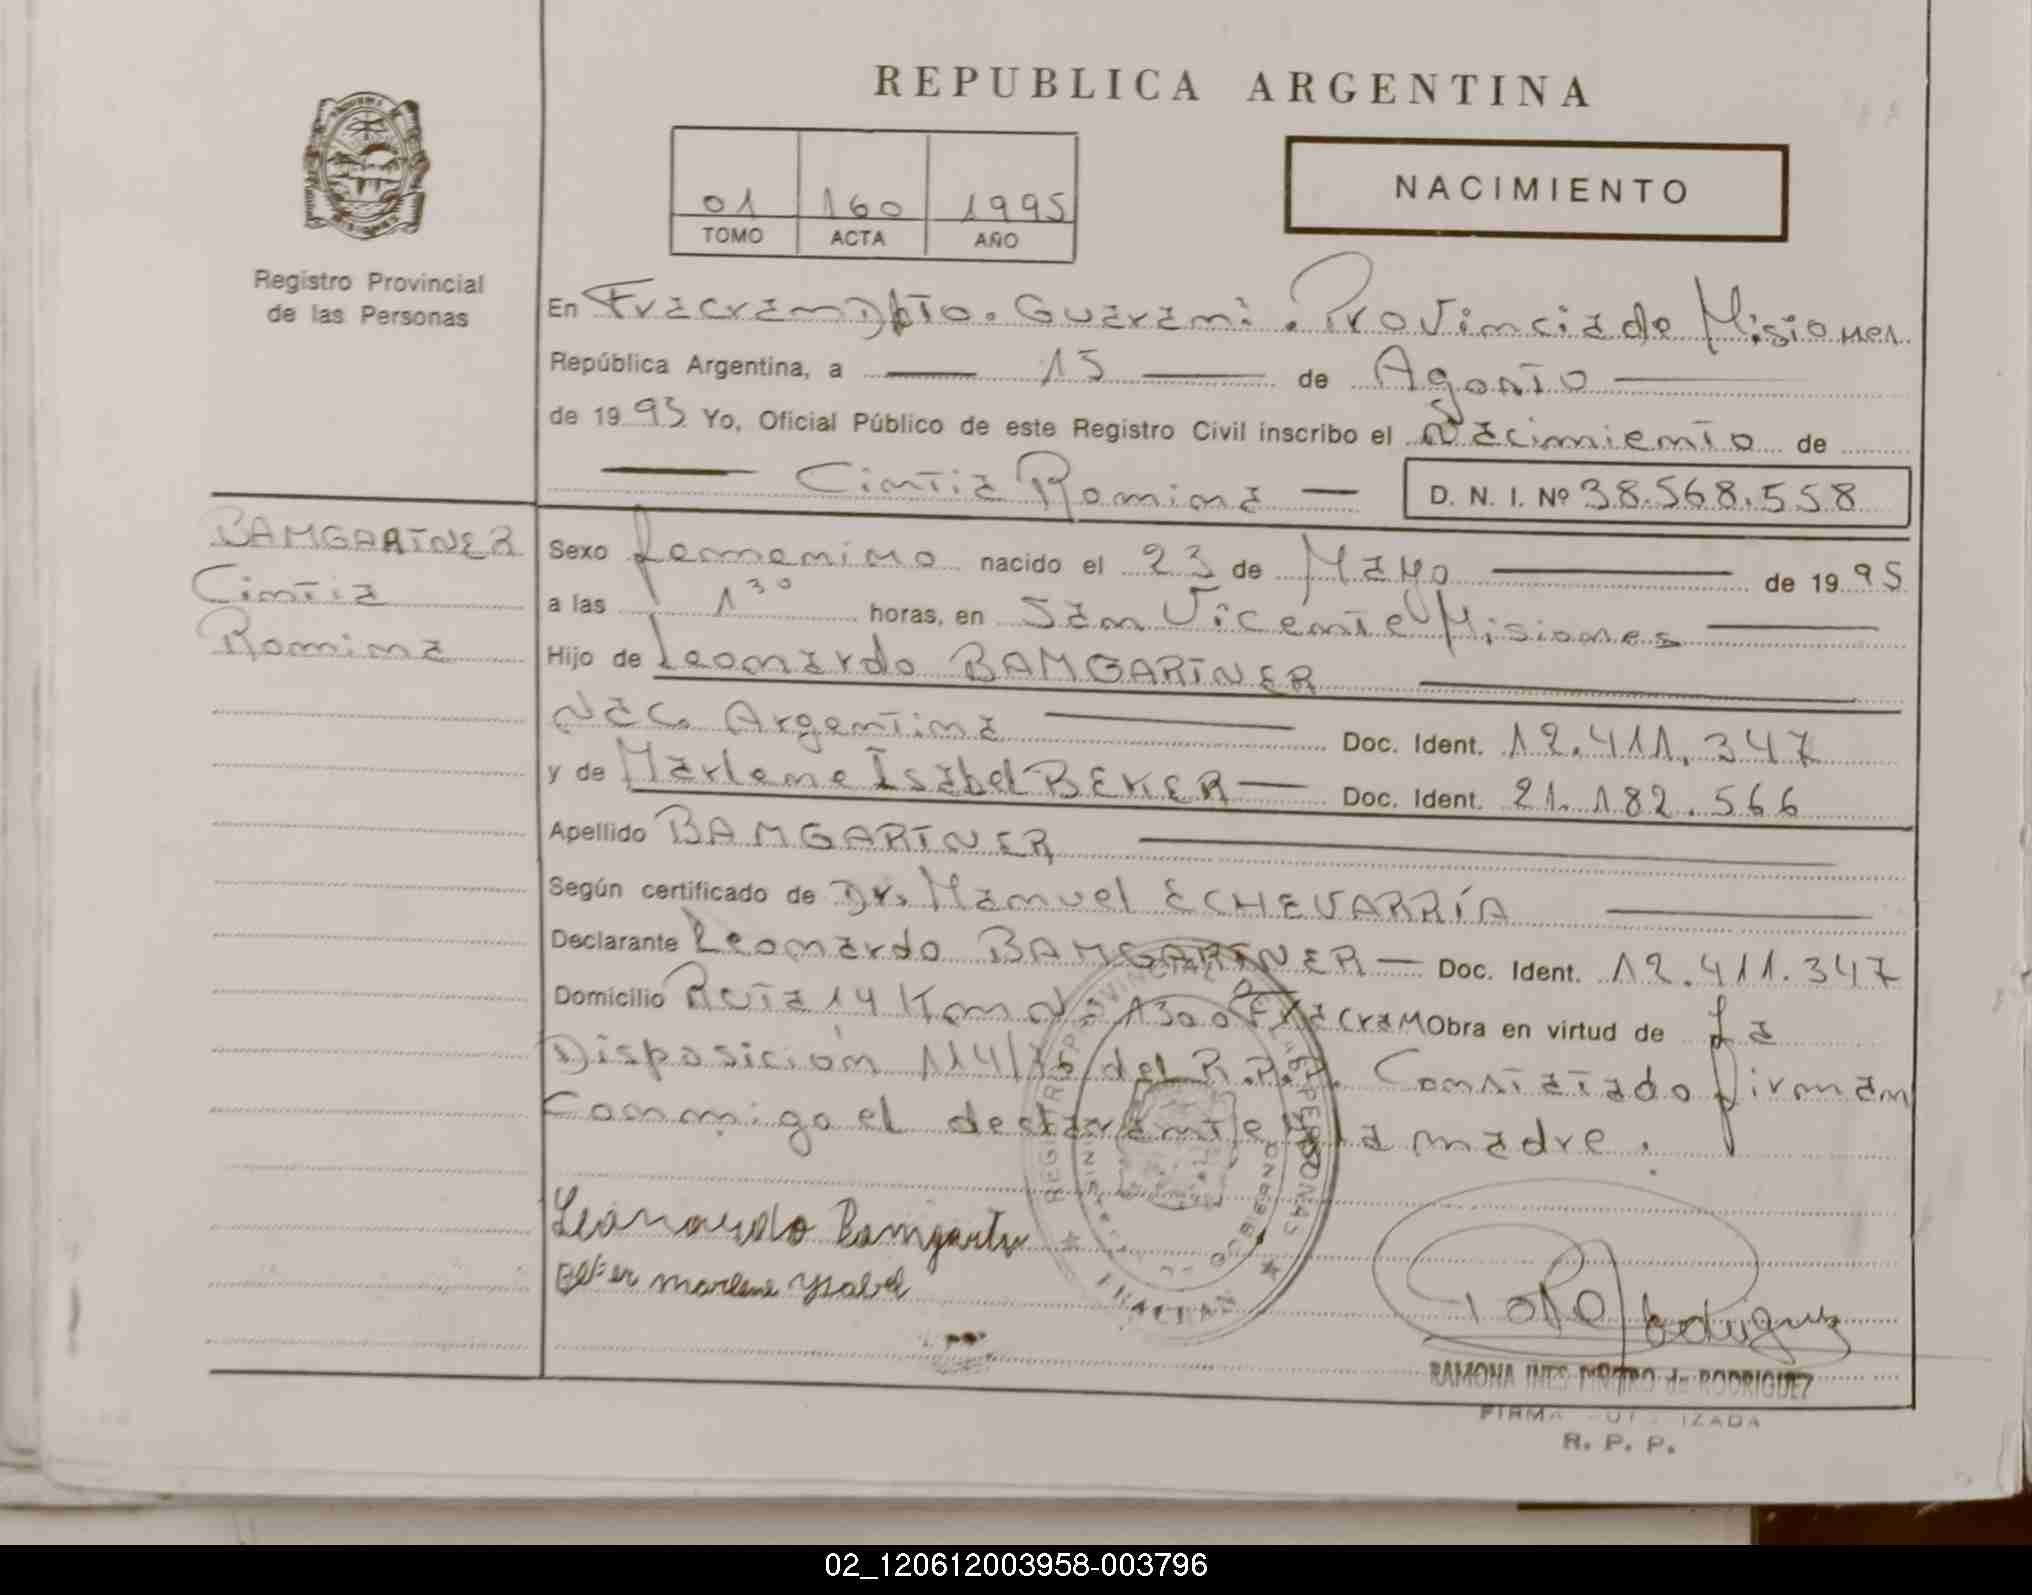 REPUBLICA ARGENTINA
01 160 1995
TOMO ACTA AÑO
NACIMIENTO
Registro Provincial
de las Personas
En Fracran Dpto. Guaraní. Provincia de Misiones
República Argentina, a 15 de Agosto
de 1995 Yo, Oficial Público de este Registro Civil inscribo el Nacimiento de
Cintia Romina D. N. I. Nº 38.568.558
BAMGARTNER
Cintia
Romina
Sexo femenino nacido el 23 de Mayo de 1995
a las 1 30 horas, en San Vicente Misiones
Hijo de Leonardo BAMGARTNER
Nac. Argentina Doc. Ident. 12.411.347
y de Marlene Isabel BEKER Doc. Ident. 21.182.566
Apellido BAMGARTNER
Según certificado de Dr. Manuel ECHEVARRÍA
Declarante Leonardo BAMGARTNER Doc. Ident. 12.411.347
Domicilio Ruta 14 Km Nº 1300 Fracran Obra en virtud de La
Disposición 114/76 del R.P.P. Constatado firman
Conmigo el declarante y la madre.
REGISTRO PROVINCIAL DE LAS PERSONAS
FRACRAN
Leonardo Bamgartner
Beker marlene ysabel
Rodriguez
RAMONA INES de RODRIGUEZ
FIRMA AUTORIZADA
R. P. P.
02_120612003958-003796